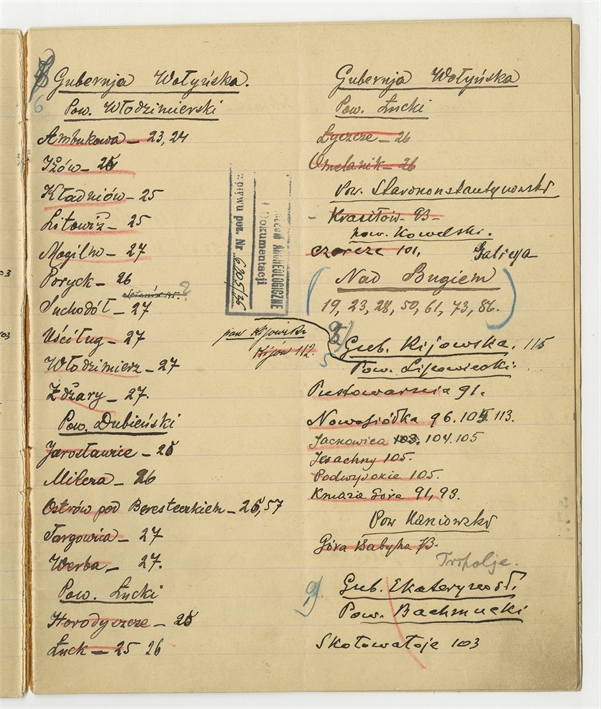 Gubernja Wołyńska.
6
Pow. Włodzimierski
Ambukowa - 23, 24
Iżów - 25
Kładniów - 25
Litowiż - 25
Mogilno - 27
Poryck - 26
Suchodół - 27
Uściług - 27
Włodzimierz - 27
Zdżary - 27.
Pow. Dubieński
Jarosławice - 25
Milcza - 26
Ostrów pod Beresteczkiem - 25, 57
Targowica - 27
Werba - 27.
Pow. Łucki
Horodyszcze - 25
Łuck - 25 26
ARCHEOLOGICZNE
Dokumentacji
poz. Nr 6205/35
Gubernja Wołyńska
Pow. Łucki
Łyczcze - 26
Omelanik - 26
Pow. Starokonstantynowski
- Krasiłów - 93 -
pow. Kowelski.
Czereze 101, Galicya
Nad Bugiem
19, 23, 28, 50, 61, 73, 86.
pow. Kijowski
Kijów 112.
5
Gub. Kijowska. 115
Pow. Lipowiecki.
Pustowarnia 91.
Nowosiółka 96. 105. 113.
Jackowica 103. 104. 105
Jesachny 105.
Podwysokie 105.
Kniazia Góra 91, 93.
Pow Kaniowski
Góra Babyna 73.
Tripolje.
9.
Gub. Ekaterynosł.
Pow. Bachmucki
Skotowatoje 103